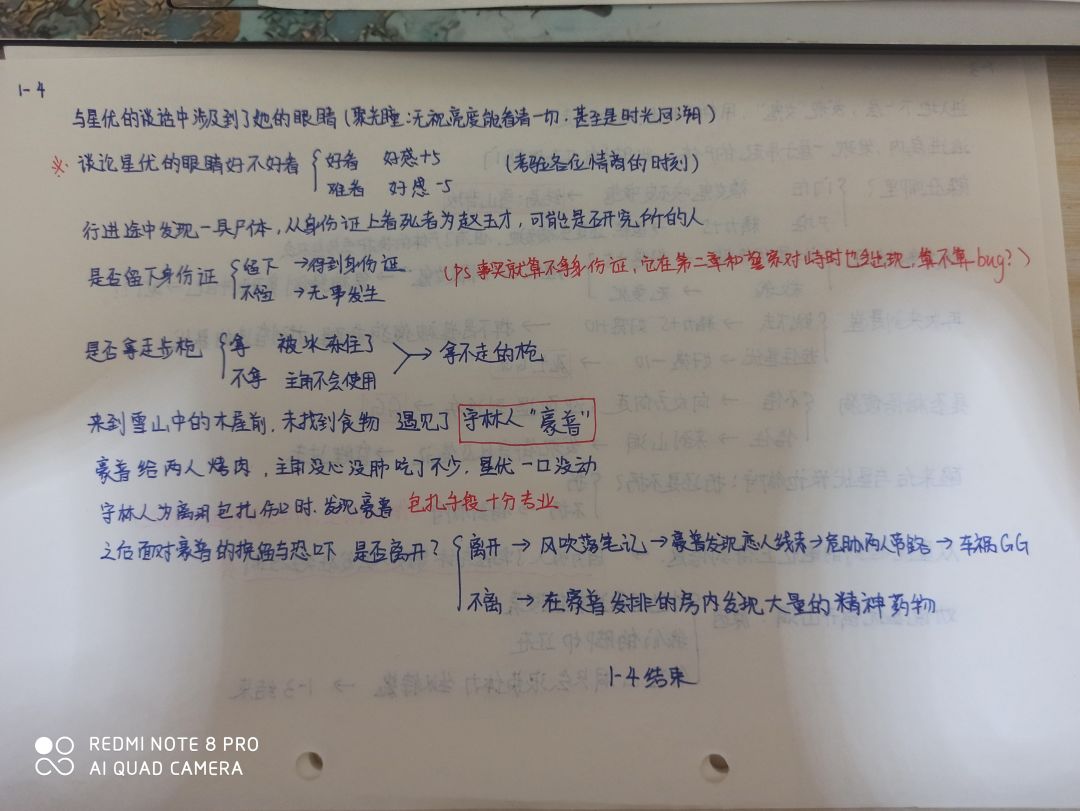 1-4
与星优的谈话中涉及到了她的眼睛(聚光瞳:无视亮度能看清一切.甚至是时光回溯)
※ 谈论星优的眼睛好不好看 { 好看 好感+5 (考验各位情商的时刻)
难看 好感-5
行进途中发现一具尸体,从身份证上看死者为赵玉才,可能是否研究所的人
是否留下身份证 { 留下 →得到身份证 (ps事实就算不拿身份证,它在第二章和警察对峙时也会出现,算不算bug?)
不留 →无事发生
是否拿走步枪 { 拿 被冰冻住了 → 拿不走的枪
不拿 主角不会使用
来到雪山中的木屋前,未找到食物 遇见了 守林人"豪普"
豪普给两人烤肉,主角没心没肺吃了不少,星优一口没动
守林人为离羽包扎伤口时.发现豪普 包扎手段十分专业
之后面对豪普的挽留与恐吓 是否离开? { 离开 → 风吹落笔记→豪普发现恋人线索→危胁两人带路 → 车祸GG
不离 → 在豪普安排的房内发现大量的精神药物
1-4结束
REDMI NOTE 8 PRO
AI QUAD CAMERA